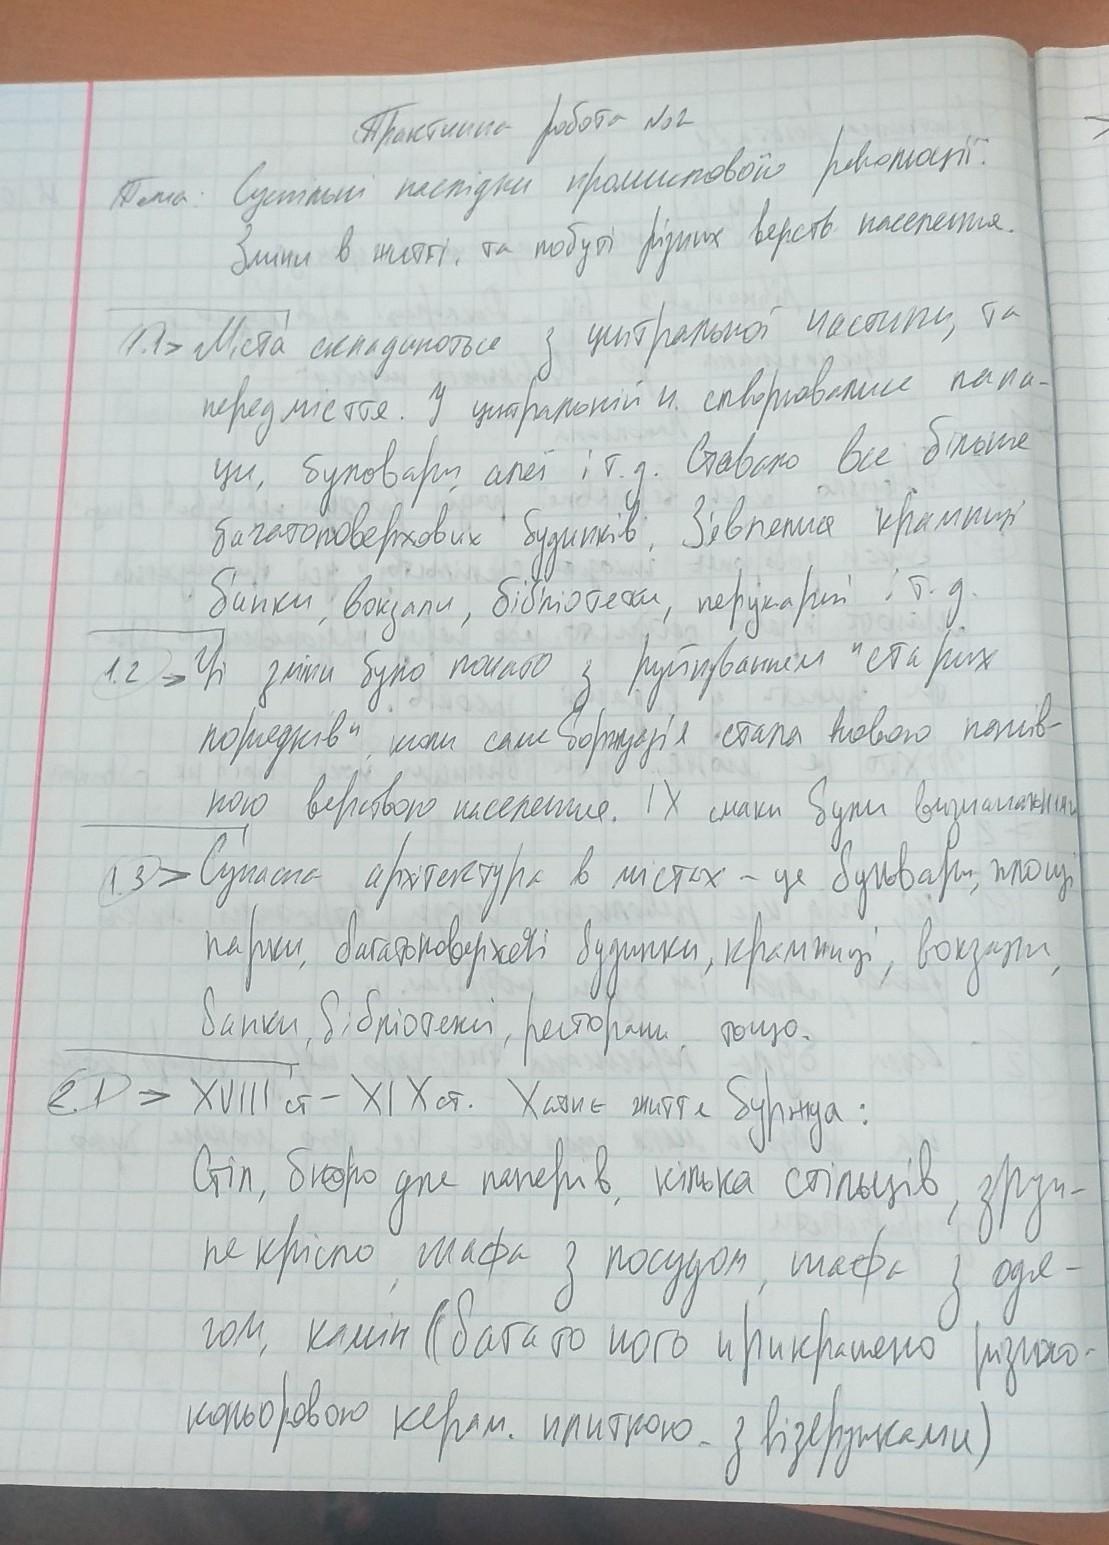 Практична робота №2
Тема: Суспільні наслідки промислової революції.
Зміни в житті, та побуті різних верств населення.
1.1> Міста складаються з центральної частини, та
передмістя. У центральній ч. створювалися пала-
ци, бульвари, алеї і т.д. Ставало все більше
багатоповерхових будинків. З'явлення крамниці
банки, вокзали, бібліотеки, перукарні і т.д.
1.2 -> Ці зміни було почато з руйнуванням "старих
порядків", коли саме буржуазія стала новою панів-
ною верствою населення. ЇХ смаки були визначальними
1.3 > Сучасна архітектура в містах - це бульвари, площі
парки, багатоповерхові будинки, крамниці, вокзали,
банки, бібліотеки, ресторани, тощо.
2.1 => XVIII ст - XIX ст. Хатнє життя буржуа:
Стіл, бюро для паперів, кілька стільців, зруч-
не крісло, шафа з посудом, шафа з одя-
гом, камін (багато чого прикрашено різноко-
кольоровою керам. плиткою з візерунками)